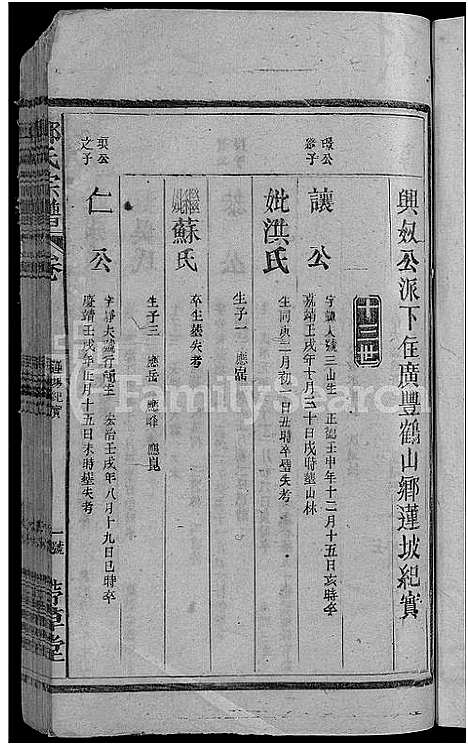 興奴公派下住廣豐鶴山鄉蓮坡紀實
十三世
璟公
之子
讓公
字謙大號三山生 正德壬申年十二月十五日亥時卒
嘉靖壬戌年十月三十日戌時墓山林
妣洪氏
生同庚二月初二日丑時卒墓失考
生子一 應嵩
繼妣蘇氏
卒生墓失考
生子三 應岳 應峰 應崑
公
之子
仁公
弘治壬戌年八月十九日巳時卒
嘉靖壬戌年正月十五日未時墓失考
氏宗譜
卷
蓮坡紀實
一號
堂
FamilySearch